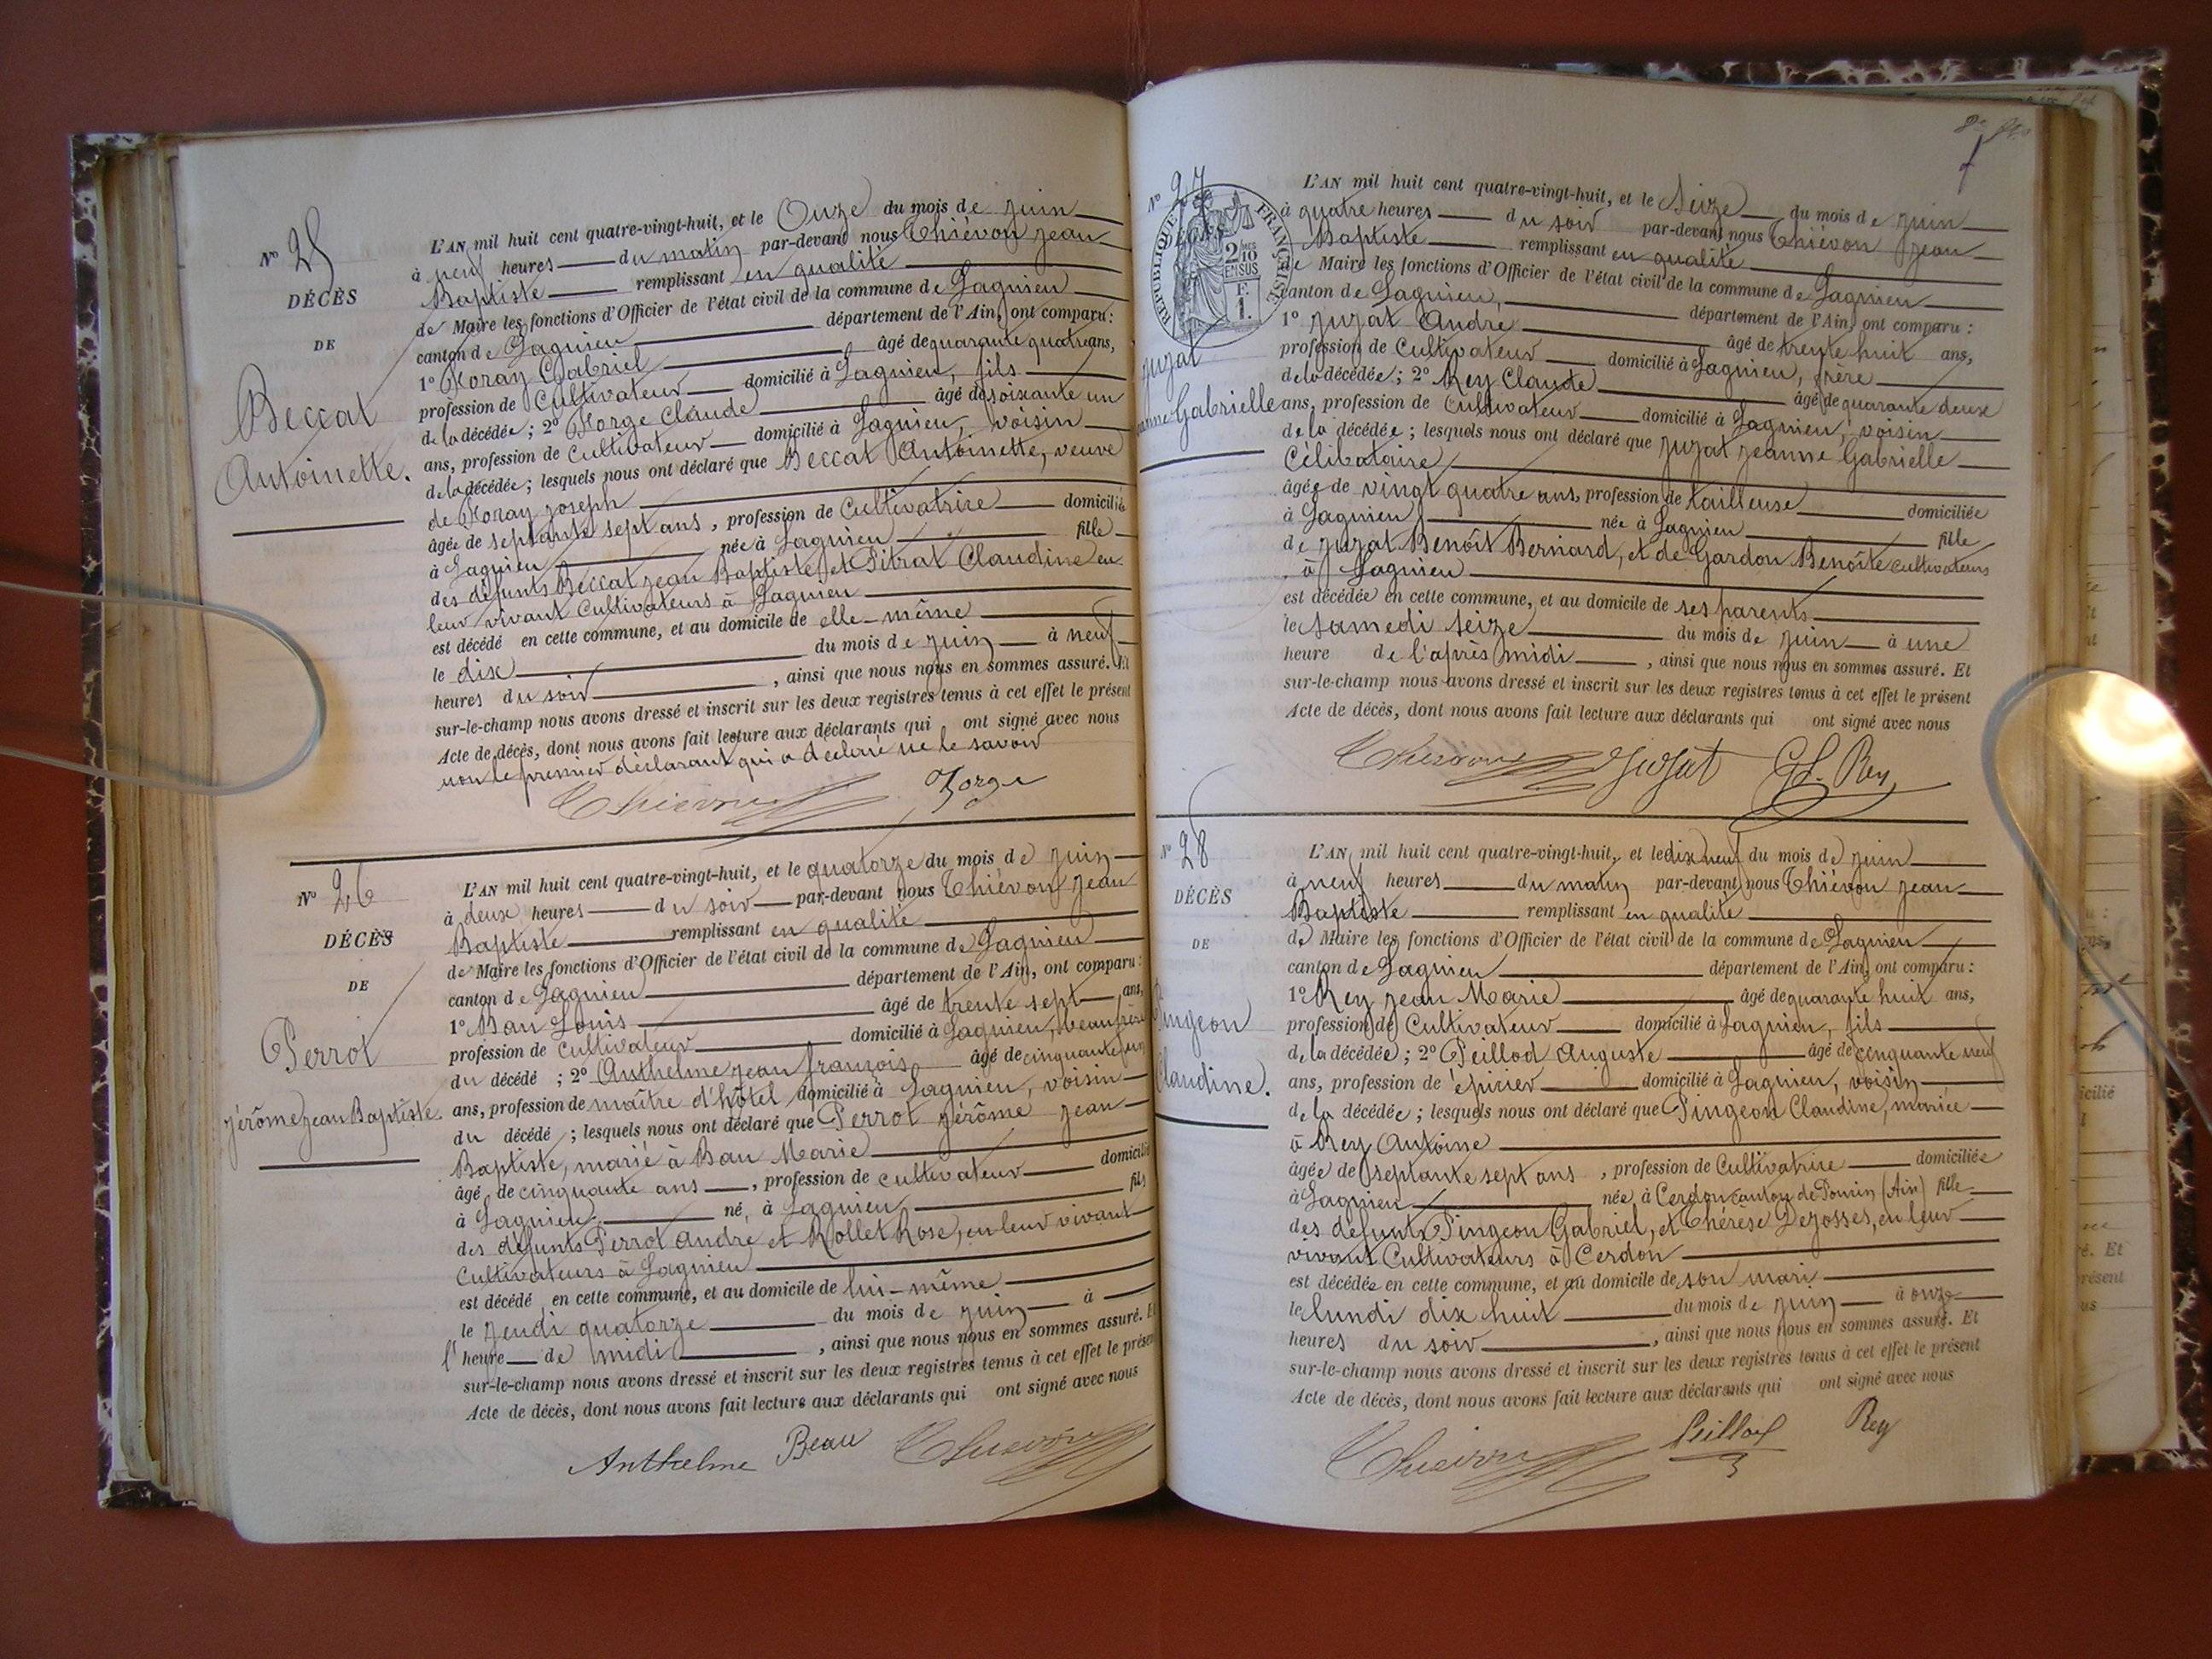 N° 25
DÉCÈS
DE
Beccat
Antoinette.
L'AN mil huit cent quatre-vingt-huit, et le Onze du mois de juin
à neuf heures du matin par-devant nous Thiévon Jean
Baptiste remplissant en qualité
de Maire les fonctions d'Officier de l'état civil de la commune de Lagnieu
canton de Lagnieu département de l'Ain, ont comparu :
1° Gabriel âgé de quarante quatre ans,
profession de Cultivateur domicilié à Lagnieu, fils
de la décédée ; 2° Claude âgé de soixante un
ans, profession de Cultivateur domicilié à Lagnieu, voisin
de la décédée ; lesquels nous ont déclaré que Beccat Antoinette, veuve
de Joseph
âgée de septante sept ans, profession de Cultivatrice domiciliée
à Lagnieu née à Lagnieu fille
des défunts Beccat Jean Baptiste, et Pitrat Claudine en
leur vivant Cultivateurs à Lagnieu
est décédé en cette commune, et au domicile de elle-même
le dix du mois de juin à neuf
heures du soir, ainsi que nous nous en sommes assuré. Et
sur-le-champ nous avons dressé et inscrit sur les deux registres tenus à cet effet le présent
Acte de décès, dont nous avons fait lecture aux déclarants qui ont signé avec nous
non le premier déclarant qui a déclaré ne le savoir
N° 26
DÉCÈS
DE
Perrot
Jérôme Jean Baptiste.
L'AN mil huit cent quatre-vingt-huit, et le quatorze du mois de juin
à deux heures du soir par-devant nous Thiévon Jean
Baptiste remplissant en qualité
de Maire les fonctions d'Officier de l'état civil de la commune de Lagnieu
canton de Lagnieu département de l'Ain, ont comparu :
1° Bau Louis âgé de trente sept ans,
profession de cultivateur domicilié à Lagnieu, beau frère
du décédé ; 2° Anthelme Jean François âgé de cinquante
ans, profession de maître d'hôtel domicilié à Lagnieu, voisin
du décédé ; lesquels nous ont déclaré que Perrot Jérôme Jean
Baptiste, marié à Bau Marie
âgé de cinquante ans, profession de cultivateur domicilié
à Lagnieu, né à Lagnieu fils
des défunts Perrot André et Rollet Rose, en leur vivant
Cultivateurs à Lagnieu
est décédé en cette commune, et au domicile de lui-même
le jeudi quatorze du mois de juin à
l'heure de midi, ainsi que nous nous en sommes assuré. Et
sur-le-champ nous avons dressé et inscrit sur les deux registres tenus à cet effet le présent
Acte de décès, dont nous avons fait lecture aux déclarants qui ont signé avec nous
Anthelme Beau
N° 27
RÉPUBLIQUE FRANÇAISE
2/10 EN SUS
F. 1.
Juzat
Jeanne Gabrielle
L'AN mil huit cent quatre-vingt-huit, et le Seize du mois de juin
à quatre heures du soir par-devant nous Thiévon Jean
Baptiste remplissant en qualité
de Maire les fonctions d'Officier de l'état civil de la commune de Lagnieu
canton de Lagnieu, département de l'Ain, ont comparu :
1° Juzat André âgé de trente huit ans,
profession de Cultivateur domicilié à Lagnieu, frère
de la décédée ; 2° Rey Claude âgé de quarante deux
ans, profession de Cultivateur domicilié à Lagnieu, voisin
de la décédée ; lesquels nous ont déclaré que Juzat Jeanne Gabrielle
Célibataire
âgée de vingt quatre ans, profession de tailleuse domiciliée
à Lagnieu née à Lagnieu fille
de Juzat Benoît Bernard, et de Gardon Benoîte cultivateurs
à Lagnieu
est décédée en cette commune, et au domicile de ses parents
le samedi seize du mois de juin à une
heure de l'après midi, ainsi que nous nous en sommes assuré. Et
sur-le-champ nous avons dressé et inscrit sur les deux registres tenus à cet effet le présent
Acte de décès, dont nous avons fait lecture aux déclarants qui ont signé avec nous
Juzat Cl. Rey
N° 28
DÉCÈS
DE
Pingeon
Claudine.
L'AN mil huit cent quatre-vingt-huit, et le dix neuf du mois de juin
à neuf heures du matin par-devant nous Thiévon Jean
Baptiste remplissant en qualité
de Maire les fonctions d'Officier de l'état civil de la commune de Lagnieu
canton de Lagnieu département de l'Ain, ont comparu :
1° Rey Jean Marie âgé de quarante huit ans,
profession de Cultivateur domicilié à Lagnieu, fils
de la décédée ; 2° Peillod Auguste âgé de cinquante neuf
ans, profession de épicier domicilié à Lagnieu, voisin
de la décédée ; lesquels nous ont déclaré que Pingeon Claudine, mariée
à Rey Antoine
âgée de septante sept ans, profession de Cultivatrice domiciliée
à Lagnieu née à Cerdon canton de Poncin (Ain) fille
des défunts Pingeon Gabriel, et Thérèse Dezosses, en leur
vivant Cultivateurs à Cerdon
est décédée en cette commune, et au domicile de son mari
le lundi dix huit du mois de juin à onze
heures du soir, ainsi que nous nous en sommes assuré. Et
sur-le-champ nous avons dressé et inscrit sur les deux registres tenus à cet effet le présent
Acte de décès, dont nous avons fait lecture aux déclarants qui ont signé avec nous
Peillod Rey